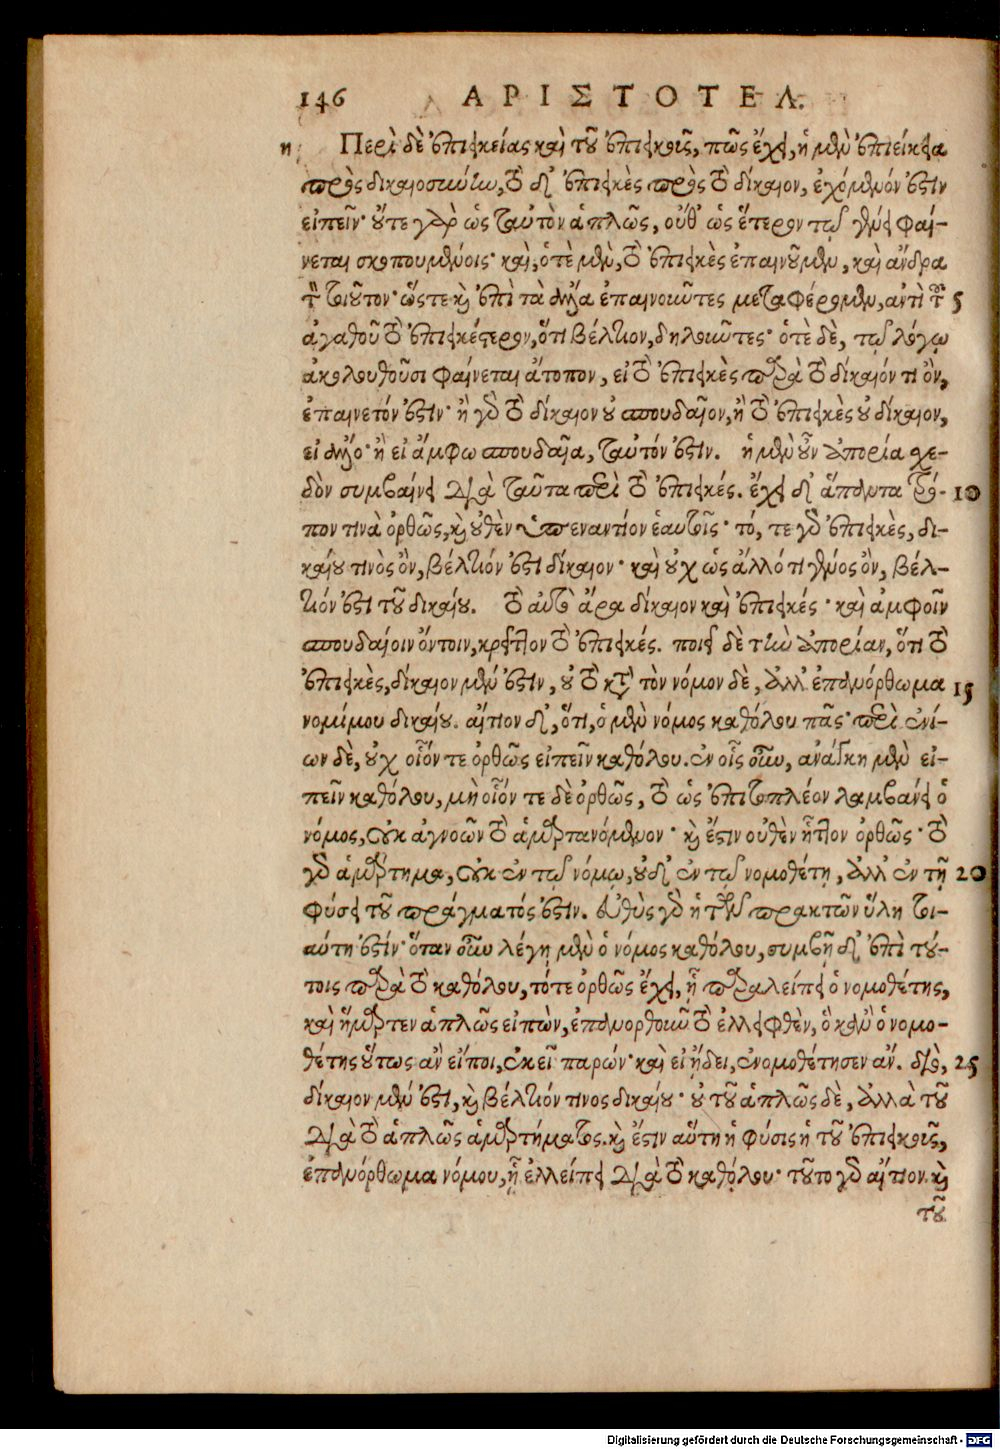 146 ΑΡΙΣΤΟΤΕΛ.
η Περὶ δὲ ἐπιεικείας καὶ τοῦ ἐπιεικοῦς, πῶς ἔχει, ἡ μὲν ἐπιείκεια
πρὸς δικαιοσύνην, τὸ δ' ἐπιεικὲς πρὸς τὸ δίκαιον, ἐχόμενόν ἐστιν
εἰπεῖν· οὔτε γὰρ ὡς ταὐτὸν ἁπλῶς, οὔθ' ὡς ἕτερον τῷ γένει φαί-
νεται σκοπουμένοις· καὶ, ὁτὲ μὲν, τὸ ἐπιεικὲς ἐπαινοῦμεν, καὶ ἄνδρα
τὸν τοιοῦτον· ὥστε καὶ ἐπὶ τὰ ἄλλα ἐπαινοῦντες μεταφέρομεν, ἀντὶ τοῦ 5
ἀγαθοῦ τὸ ἐπιεικέστερον, ὅτι βέλτιον, δηλοῦντες· ὁτὲ δὲ, τῷ λόγῳ
ἀκολουθοῦσι φαίνεται ἄτοπον, εἰ τὸ ἐπιεικὲς παρὰ τὸ δίκαιόν τι ὂν,
ἐπαινετόν ἐστιν· ἢ γὰρ τὸ δίκαιον οὐ σπουδαῖον, ἢ τὸ ἐπιεικὲς οὐ δίκαιον,
εἰ ἄλλο· ἢ εἰ ἄμφω σπουδαῖα, ταὐτόν ἐστιν. ἡ μὲν οὖν ἀπορία σχε-
δὸν συμβαίνει διὰ ταῦτα περὶ τὸ ἐπιεικές. ἔχει δ' ἅπαντα τρό- 10
πον τινὰ ὀρθῶς, καὶ οὐθὲν ὑπεναντίον ἑαυτοῖς· τό, τε γὰρ ἐπιεικὲς, δι-
καίου τινὸς ὂν, βέλτιόν ἐστι δίκαιον· καὶ οὐχ ὡς ἄλλό τι γένος ὂν, βέλ-
τιόν ἐστι τοῦ δικαίου. τὸ αὐτὸ ἄρα δίκαιον καὶ ἐπιεικές· καὶ ἀμφοῖν
σπουδαίοιν ὄντοιν, κρεῖττον τὸ ἐπιεικές. ποιεῖ δὲ τὴν ἀπορίαν, ὅτι τὸ
ἐπιεικὲς, δίκαιον μέν ἐστιν, οὐ τὸ κατὰ τὸν νόμον δὲ, ἀλλ' ἐπανόρθωμα 15
νομίμου δικαίου. αἴτιον δ', ὅτι, ὁ μὲν νόμος καθόλου πᾶς· περὶ ἐνί-
ων δὲ, οὐχ οἷόν τε ὀρθῶς εἰπεῖν καθόλου. ἐν οἷς οὖν, ἀνάγκη μὲν εἰ-
πεῖν καθόλου, μὴ οἷόν τε δὲ ὀρθῶς, τὸ ὡς ἐπιτοπλέον λαμβάνει ὁ
νόμος, οὐκ ἀγνοῶν τὸ ἁμαρτανόμενον· καὶ ἔστιν οὐθὲν ἧττον ὀρθῶς· τὸ
γὰρ ἁμάρτημα, οὐκ ἐν τῷ νόμῳ, οὐδ' ἐν τῷ νομοθέτῃ, ἀλλ' ἐν τῇ 20
φύσει τοῦ πράγματός ἐστιν. εὐθὺς γὰρ ἡ τῶν πρακτῶν ὕλη τοι-
αύτη ἐστίν· ὅταν οὖν λέγῃ μὲν ὁ νόμος καθόλου, συμβῇ δ' ἐπὶ τού-
τοις παρὰ τὸ καθόλου, τότε ὀρθῶς ἔχει, ᾗ παραλείπει ὁ νομοθέτης,
καὶ ἥμαρτεν ἁπλῶς εἰπὼν, ἐπανορθοῦν τὸ ἐλλειφθὲν, ὃ κἂν ὁ νομο-
θέτης οὕτως ἂν εἴποι, ἐκεῖ παρών· καὶ εἰ ᾔδει, ἐνομοθέτησεν ἄν. διὸ, 25
δίκαιον μέν ἐστι, καὶ βέλτιόν τινος δικαίου· οὐ τοῦ ἁπλῶς δὲ, ἀλλὰ τοῦ
διὰ τὸ ἁπλῶς ἁμαρτήματος. καὶ ἔστιν αὕτη ἡ φύσις ἡ τοῦ ἐπιεικοῦς,
ἐπανόρθωμα νόμου, ᾗ ἐλλείπει διὰ τὸ καθόλου· τοῦτο γὰρ αἴτιον καὶ
τοῦ
Digitalisierung gefördert durch die Deutsche Forschungsgemeinschaft - DFG